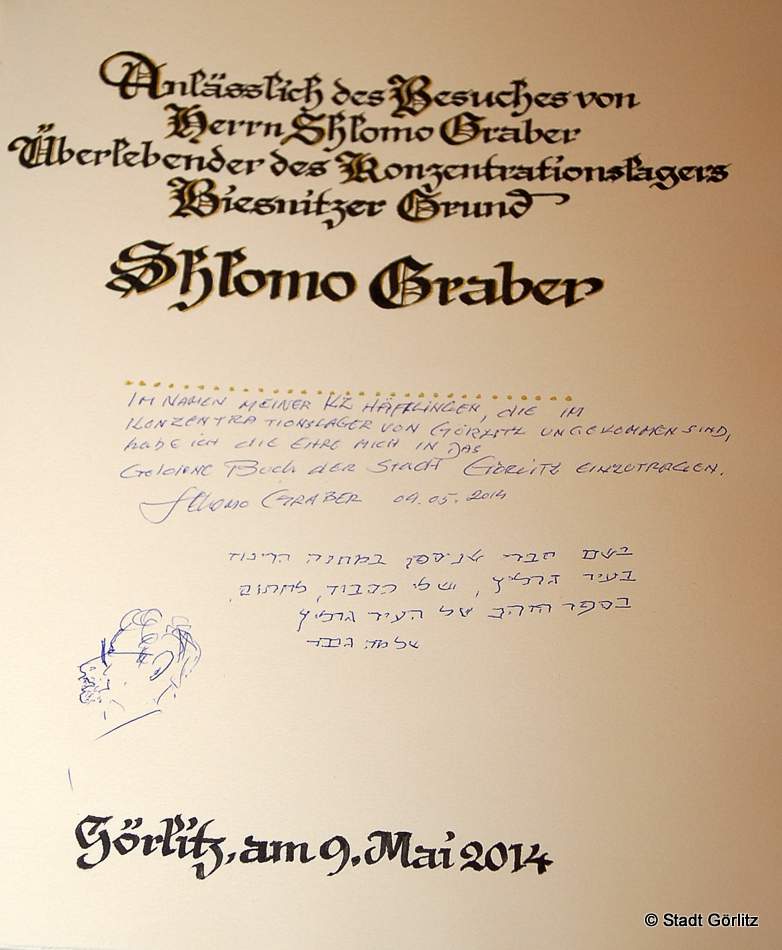 Anlässlich des Besuches von
Herrn Shlomo Graber
Überlebender des Konzentrationslagers
Biesnitzer Grund
Shlomo Graber
IM NAMEN MEINER KZ HÄFTLINGEN, DIE IM
KONZENTRATIONSLAGER VON GÖRLITZ UNGEKOMMEN SIND,
habe ich die EHRE MICH IN DAS
Goldene Buch der Stadt Görlitz einzutragen.
Shlomo GRABER 09.05.2014
בשם חברי שניספו במחנה הריכוז
בעיר גרליץ, יש לי הכבוד, לחתום,
בספר הזהב של העיר גרליץ
שלמה גרבר
Görlitz, am 9. Mai 2014
© Stadt Görlitz